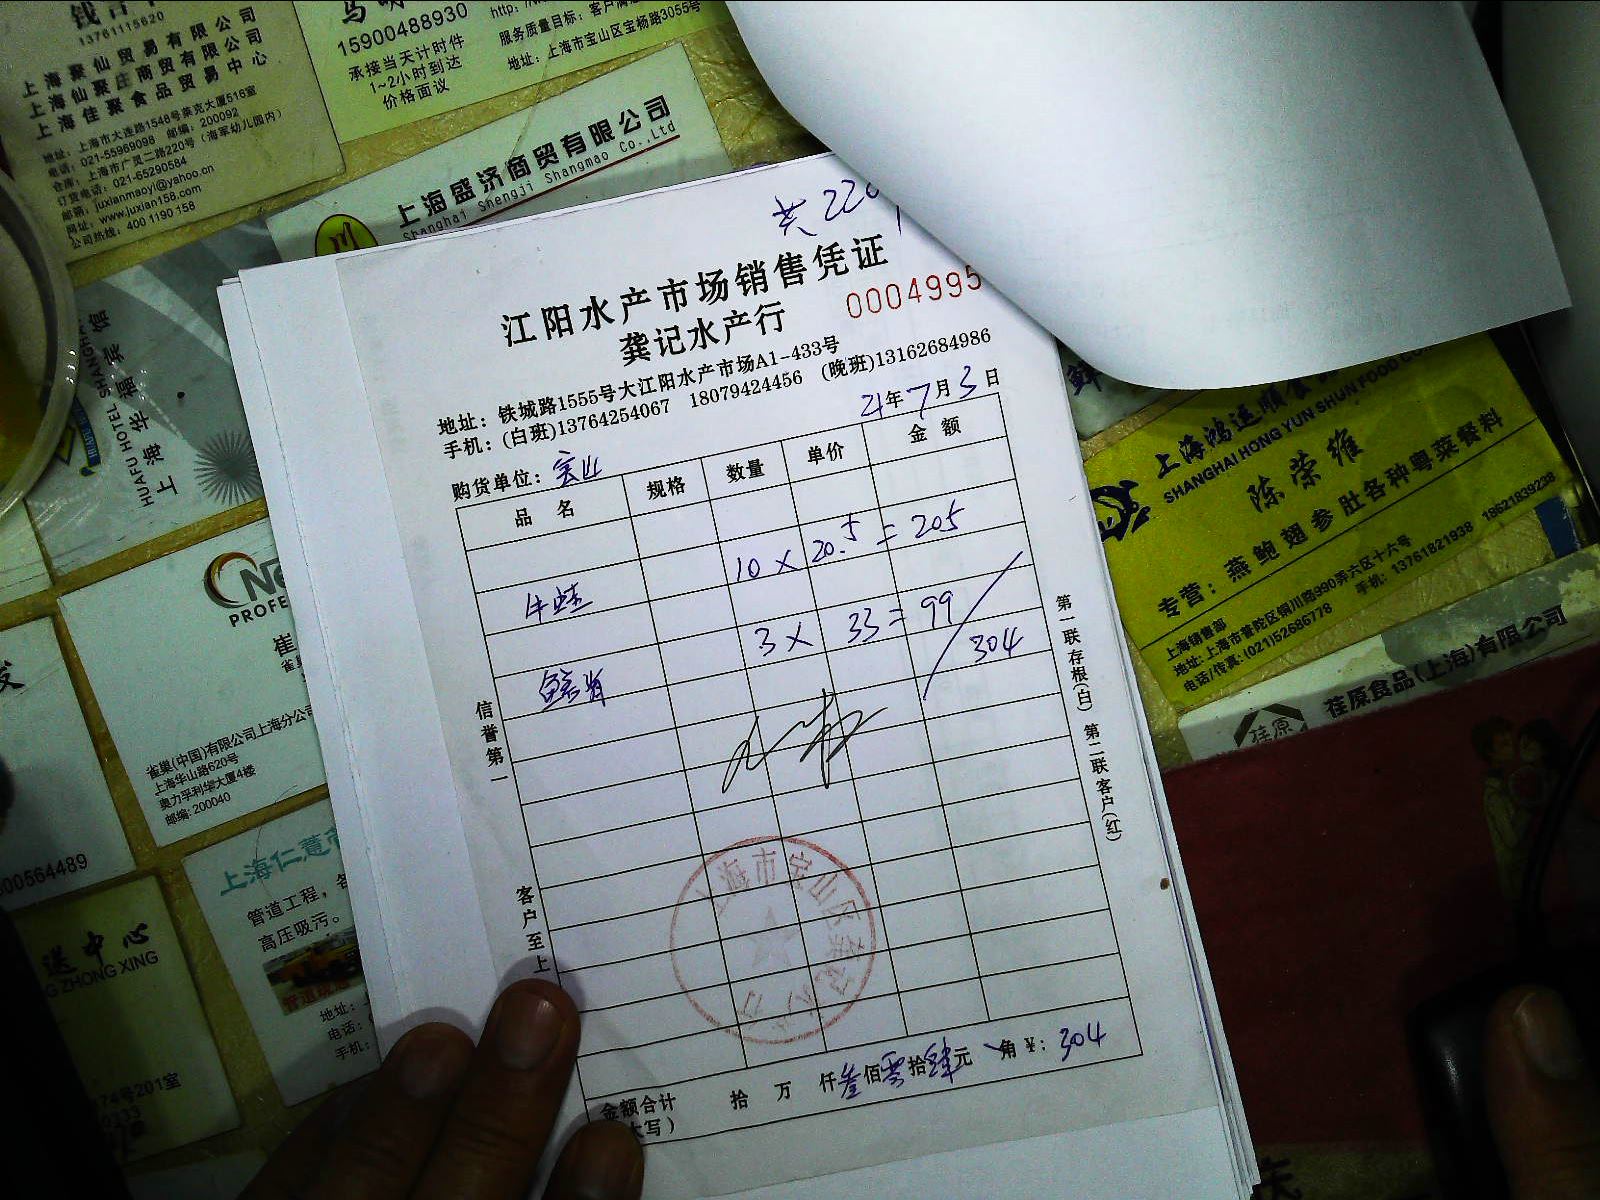 13761115620
上海聚仙贸易有限公司
上海仙聚庄商贸有限公司
上海佳聚食品贸易中心
地址：上海市大连路1546号莱克大厦516室
电话：021-55969098 邮编：200092
仓库：上海市广灵二路220号（海军幼儿园内）
订货电话：021-65290584
邮箱：juxianmaoyi@yahoo.cn
网址：www.juxian158.com
公司热线：400 1190 158
15900488930
承接当天计时件
1~2小时到达
价格面议
服务质量目标：客户满
地址：上海市宝山区宝杨路3055号
上海盛济商贸有限公司
Shanghai Shengji Shangmao Co.,Ltd
共220
江阳水产市场销售凭证
龚记水产行
0004995
地址：铁城路1555号大江阳水产市场A1-433号
手机：(白班)13764254067 18079424456 (晚班)13162684986
21年7月3日
购货单位：宝山
品 名 规格 数量 单价 金 额
牛蛙 10 × 20.5 = 205
3 × 33 = 99
304
信誉第一
客户至上
第一联存根(白) 第二联客户(红)
上海市宝山区
金额合计
大写）
拾 万 仟叁佰零拾肆元 角 ¥：304
上海华福宾馆
HUAFU HOTEL SHANGHAI
PROFE
崔
雀巢(中国)有限公司上海分公司
上海华山路620号
奥力孚利华大厦4楼
邮编：200040
00564489
上海仁薏
管道工程，
高压吸污。
地址：
电话：
手机：
送中心
G ZHONG XING
74号201室
上海鸿运顺
SHANGHAI HONG YUN SHUN FOOD CO
陈荣维
专营：燕鲍翅参肚各种粤菜餐料
上海销售部
地址：上海市普陀区铜川路990弄六区十六号
电话/传真：(021)52686778 手机：13761821938 18621839238
荏原食品(上海)有限公司
荏原